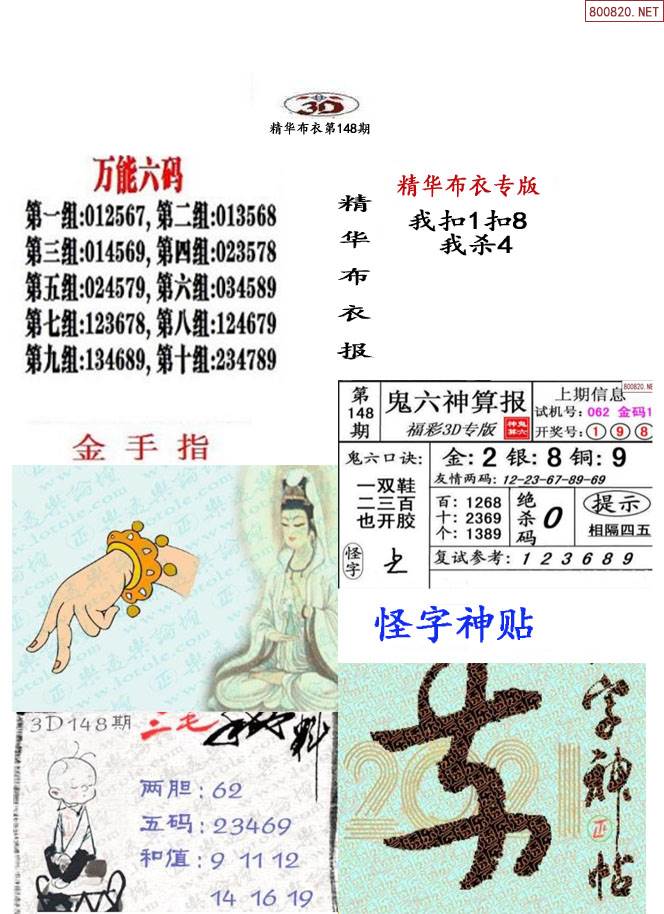 800820.NET
3D
精华布衣第148期
万能六码
第一组:012567,第二组:013568
第三组:014569,第四组:023578
第五组:024579,第六组:034589
第七组:123678,第八组:124679
第九组:134689,第十组:234789
精华布衣报
精华布衣专版
我扣1扣8
我杀4
第148期
鬼六神算报
福彩3D专版
神鬼算六
上期信息
800820.NE
试机号:062 金码1
开奖号:①⑨⑧
鬼六口诀:
一双鞋
二三百
也开胶
怪字
金:2 银:8 铜:9
友情两码:12-23-67-89-69
百:1268
十:2369
个:1389
绝杀码
0
提示
相隔四五
复试参考:123689
金手指
怪字神贴
字神帖
正
2021
3D148期
三毛
料
两胆:62
五码:23469
和值:9 11 12
14 16 19